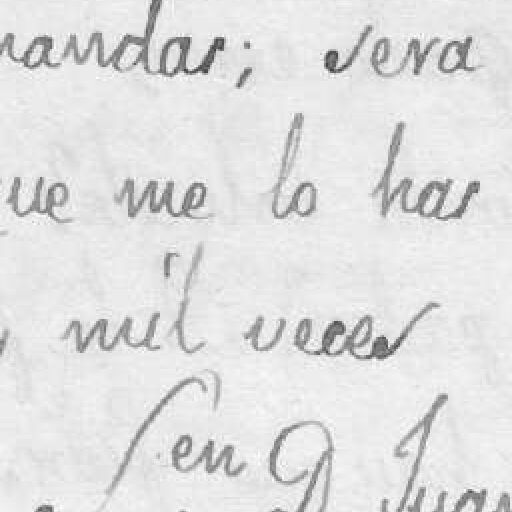 mandas; sera
que me lo has
mil veces
en G Juan